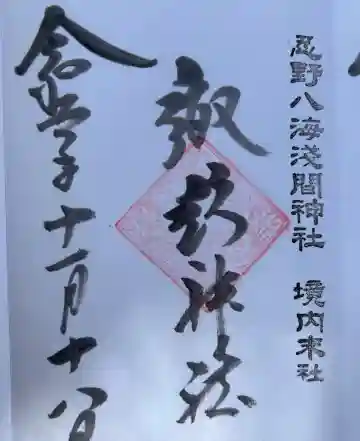 忍野八海淺間神社 境内末社
神社
令和五年十一月十八日